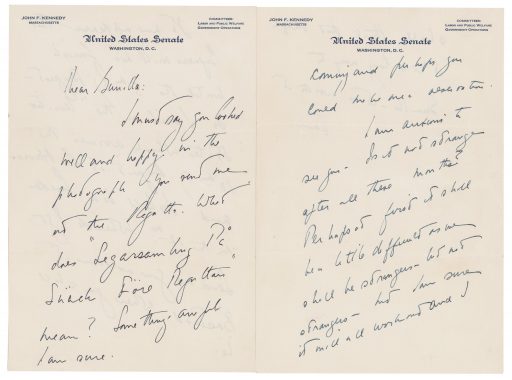 JOHN F. KENNEDY
MASSACHUSETTS
COMMITTEES:
LABOR AND PUBLIC WELFARE
GOVERNMENT OPERATIONS
United States Senate
WASHINGTON, D.C.
Dear Gunilla:
I must say you looked
well and happy in the
photograph you send me
at the Regatta. What
does "Segarsamling På
Skäck Före Regattan"
mean? Something awful
I am sure.
JOHN F. KENNEDY
MASSACHUSETTS
COMMITTEES:
LABOR AND PUBLIC WELFARE
GOVERNMENT OPERATIONS
United States Senate
WASHINGTON, D.C.
coming and perhaps you
could make me a reservation.
I am anxious to
see you. Is it not strange
after all these months?
Perhaps at first it shall
be a little difficult as we
shall be strangers - but not
strangers - but I am sure
it will all work out and I